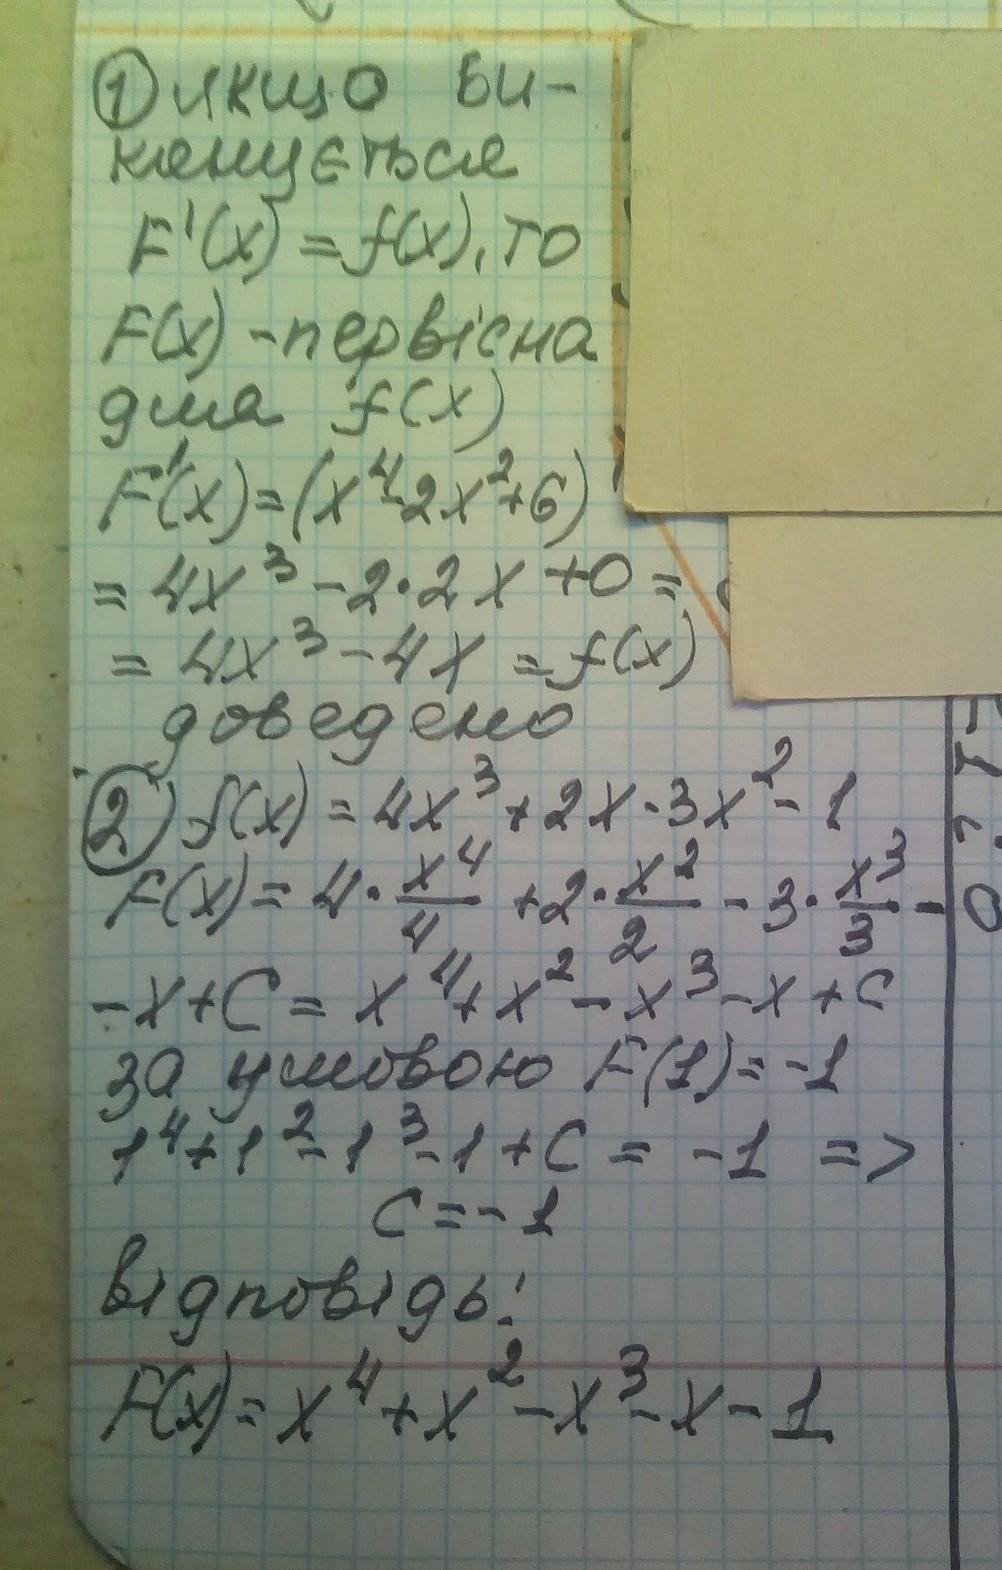 ① якщо ви-
конується
F'(x) = f(x), то
F(x) - первісна
для f(x)
F'(x) = (x⁴-2x²+6)'
= 4x³ - 2·2x + 0 =
= 4x³ - 4x = f(x)
доведено
② f(x) = 4x³ + 2x - 3x² - 1
F(x) = 4·x⁴/4 + 2·x²/2 - 3·x³/3 -
-x + C = x⁴ + x² - x³ - x + C
за умовою F(1) = -1
1⁴ + 1² - 1³ - 1 + C = -1 =>
C = -1
відповідь:
F(x) = x⁴ + x² - x³ - x - 1